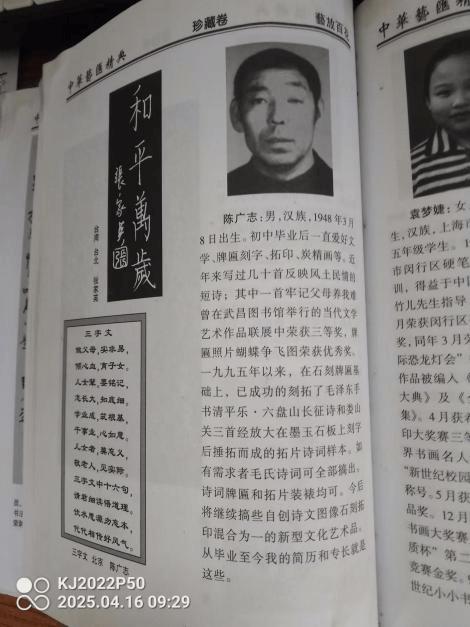 中华艺汇精典
珍藏卷
艺放百花
和平萬歲
張家英
台湾 台北 张家英
三字文
做父母,实非易,
倾心血,育子女。
人士辈,要铭记,
志长大,知底细。
学业成,筑根基,
干事业,心如意。
人士者,莫忘义,
敬老人,见实际。
三字文中十六句,
请君细读悟道理。
饮水思源为忘本,
代代相传好风气。
三字文 北京 陈广志
陈广志:男,汉族,1948年3月
8日出生。初中毕业后一直爱好文
学、牌匾刻字、拓印、炭精画等。近
年来写过几十首反映风土民情的
短诗;其中一首牢记父母养我难
曾在武昌图书馆举行的当代文学
艺术作品联展中荣获三等奖,牌
匾照片蝴蝶争飞图荣获优秀奖。
一九九五年以来,在石刻牌匾基
础上,已成功的刻拓了毛泽东手
书清平乐·六盘山长征诗和娄山
关三首经放大在墨玉石板上刻字
后捶拓而成的拓片诗词样本。如
有需求者毛氏诗词可全部搞出。
诗词牌匾和拓片装裱均可。今后
将继续搞些自创诗文图像石刻拓
印混合为一的新型文化艺术品。
从毕业至今我的简历和专长就是
这些。
中华艺汇精典
袁梦婕:女
生,汉族,上海市
五年级学生。
市闵行区硬笔
训,得益于中国
竹儿先生指导
月荣获闵行区
奖,同年3月
际恐龙灯会”
作品被编入《
大典》及《
集》。4月获
印大奖赛三等
界书画名人
“新世纪校园
称号。5月
品奖。12月
书画大奖赛
质杯”第二
竞赛金奖。
世纪小小书
KJ2022P50
2025.04.16 09:29